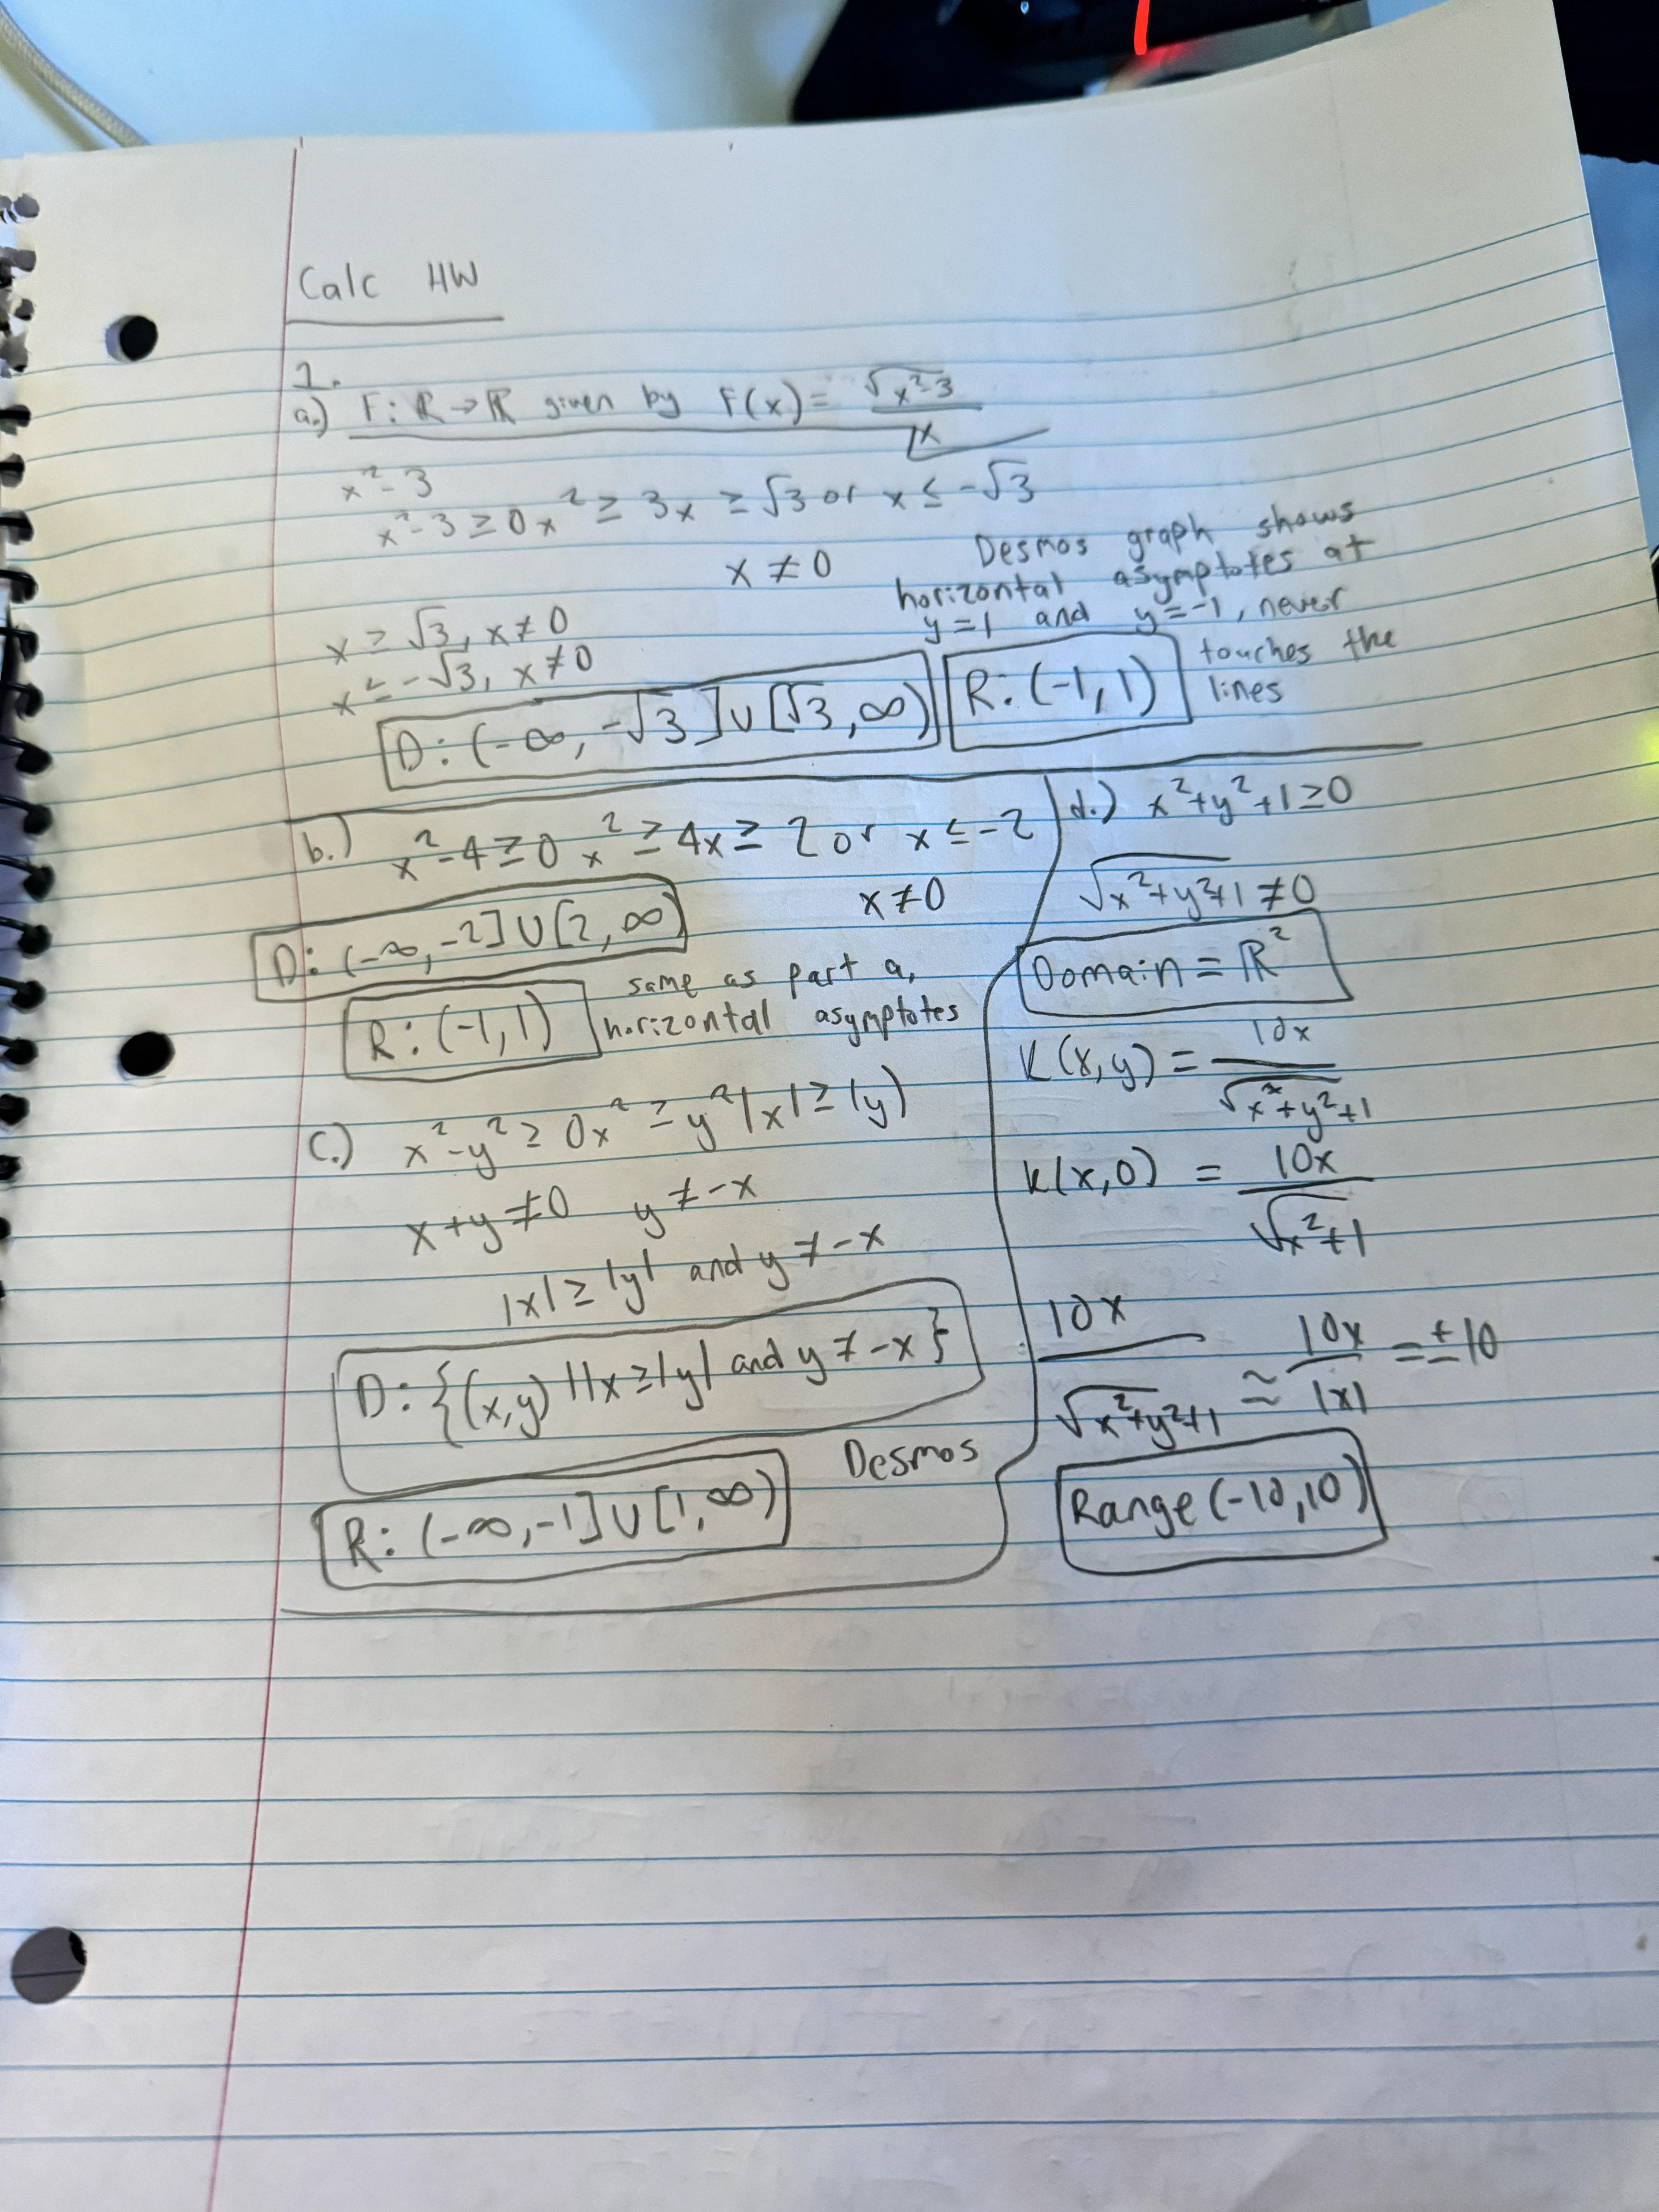 Calc HW
1.
a.) F: ℝ → ℝ given by F(x) = √(x²-3) / x
x²-3
x²-3 ≥ 0 x² ≥ 3x ≥ √3 or x ≤ -√3
x ≠ 0
Desmos graph shows
horizontal asymptotes at
y=1 and y=-1, never
touches the
lines
x ≥ √3, x≠0
x ≤ -√3, x≠0
D: (-∞, -√3] ∪ [√3, ∞)
R: (-1, 1)
b.) x²-4 ≥ 0 x² ≥ 4x ≥ 2 or x ≤ -2
x≠0
D: (-∞, -2] ∪ [2, ∞)
R: (-1, 1)
same as part a,
horizontal asymptotes
c.) x²-y² ≥ 0x² ≥ y²|x| ≥ |y)
x+y≠0 y≠-x
|x| ≥ |y| and y≠-x
D: {(x,y) ||x ≥|y| and y≠-x}
Desmos
R: (-∞, -1] ∪ [1, ∞)
d.) x²+y²+1≥0
√(x²+y²+1) ≠0
Domain = ℝ²
K(x,y) = 10x / √(x²+y²+1)
K(x,0) = 10x / √(x²+1)
10x / √(x²+y²+1) ≈ 10x / |x| = ±10
Range (-10,10)